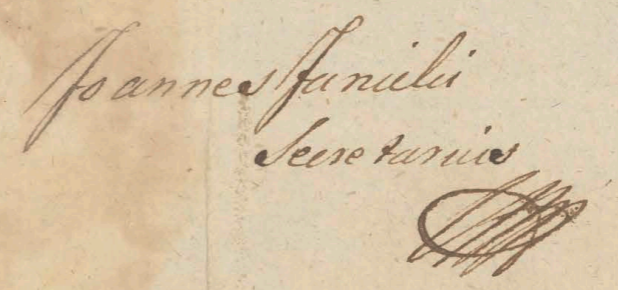 Joannes Junielii
Secretarius